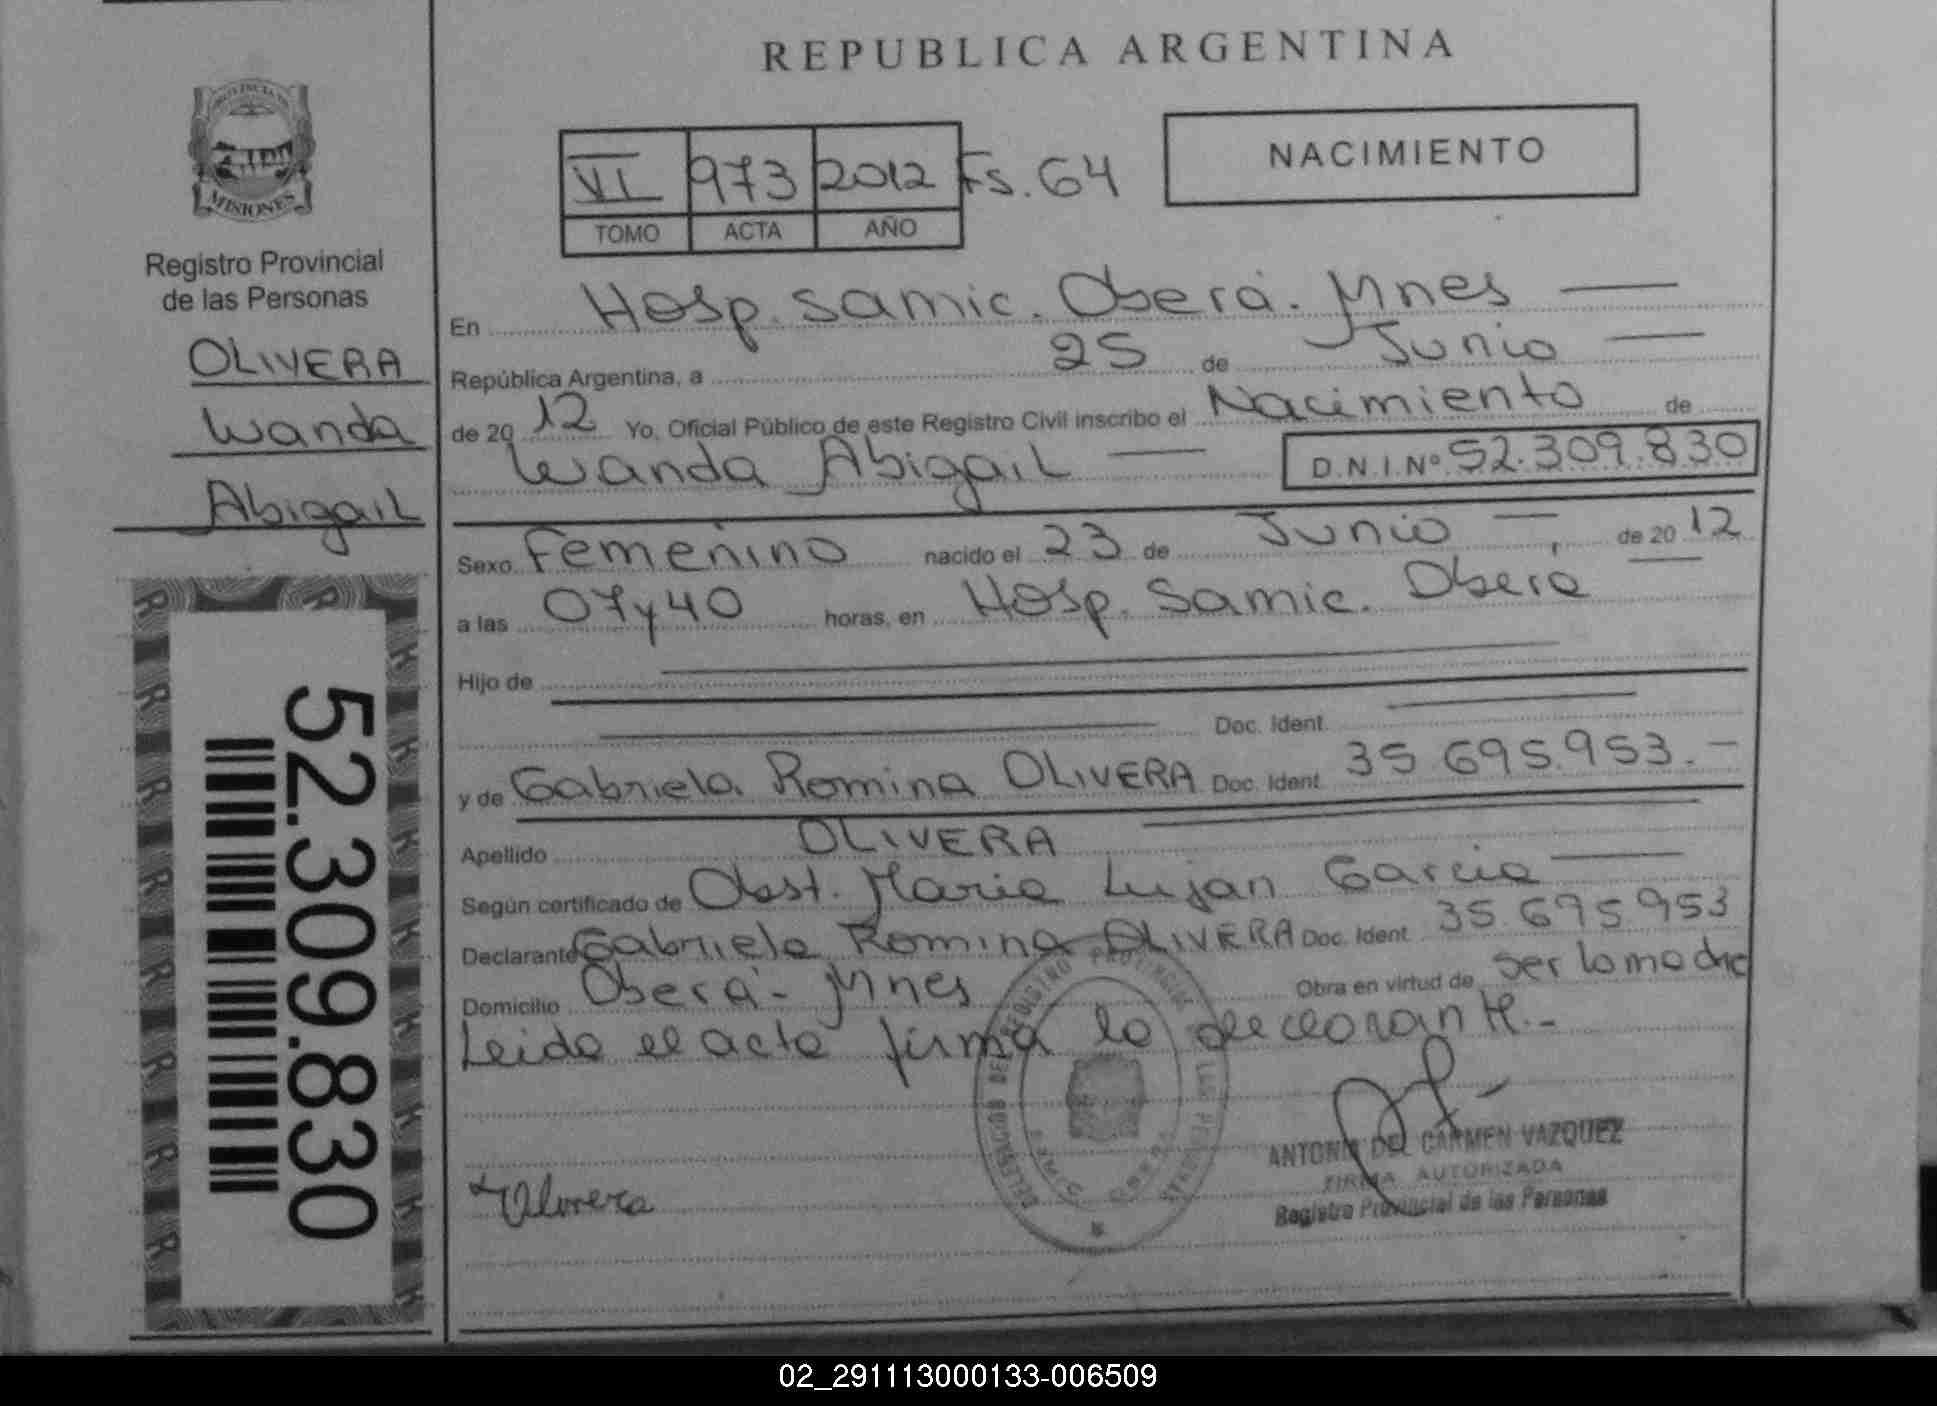 REPUBLICA ARGENTINA
PROVINCIA DE
MISIONES
Registro Provincial
de las Personas
OLIVERA
Wanda
Abigail
52.309.830
VI 973 2012 Fs. 64
TOMO ACTA AÑO
NACIMIENTO
En Hosp. Samic. Oberá. Mnes
República Argentina, a 25 de Junio
de 2012 Yo, Oficial Público de este Registro Civil inscribo el Nacimiento de
Wanda Abigail D.N.I.Nº 52.309.830
Sexo Femenino nacido el 23 de Junio de 2012
a las 07 y 40 horas, en Hosp. Samic. Obera
Hijo de
Doc. Ident.
y de Gabriela Romina OLIVERA Doc. Ident. 35 695.953.-
Apellido OLIVERA
Según certificado de Obst. Maria Lujan Garcia
Declarante Gabriela Romina OLIVERA Doc. Ident. 35.695.953
Domicilio Oberá - Mnes Obra en virtud de ser la madre
Leida el acta firma la declarante.-
Olivera
DELEGACIÓN DEL REGISTRO PROVINCIAL DE LAS PERSONAS
SAMIC OBERA
ANTONIA DEL CARMEN VAZQUEZ
FIRMA AUTORIZADA
Registro Provincial de las Personas
02_291113000133-006509